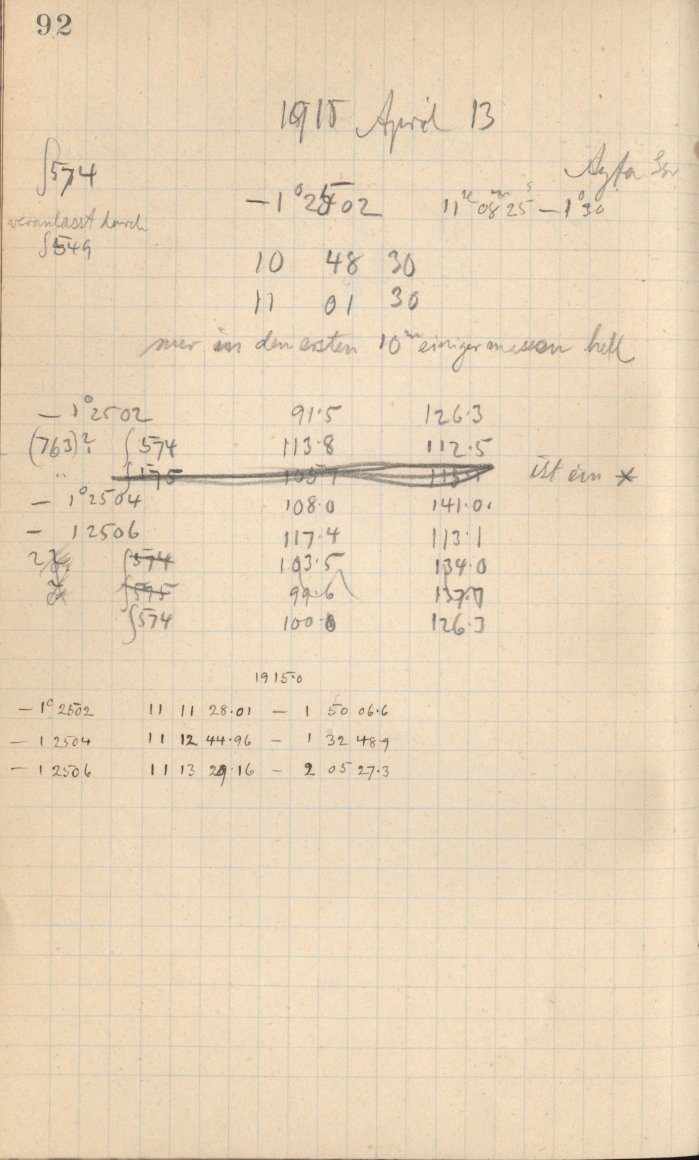 92
1915 April 13
∫574
−1° 2502 11 08 25 −1° 30
veranlasst durch
∫549
10 48 30
11 01 30
nur in den ersten 10ᵐ einigermassen hell
− 1° 2502 91.5 126.3
(763)? ∫574 113.8 112.5
" ∫575 ist ein ×
− 1° 2504 108.0 141.0
− 1 2506 117.4 113.1
∫574 103.5 134.0
∫575 99.6 137.7
∫574 100.6 126.3
1915.0
− 1° 2502 11 11 28.01 − 1 50 06.6
− 1 2504 11 12 44.96 − 1 32 48.9
− 1 2506 11 13 29.16 − 2 05 27.3